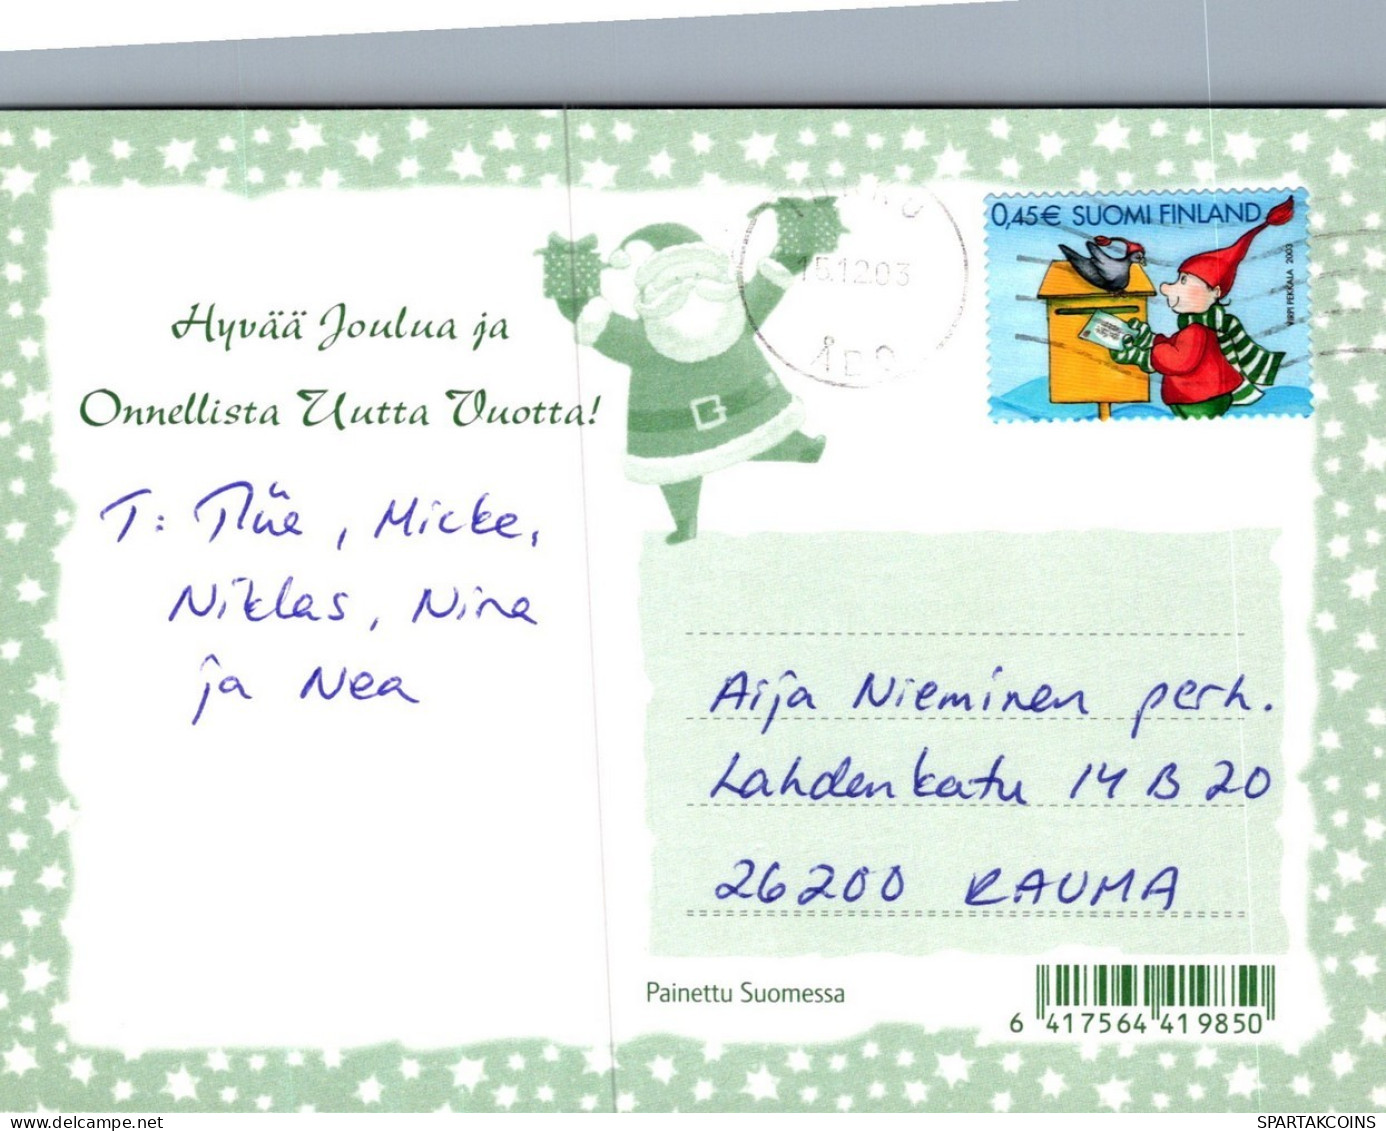 Hyvää Joulua ja
Onnellista Uutta Vuotta!
T: Tiia, Micke,
Niklas, Nina
ja Nea
15.12.03
0,45€ SUOMI FINLAND
VIRPI PEKKALA 2003
Aija Nieminen perh.
Lahdenkatu 14 B 20
26200 RAUMA
Painettu Suomessa
6 417564 419850
www.delcampe.net
SPARTAKCOINS